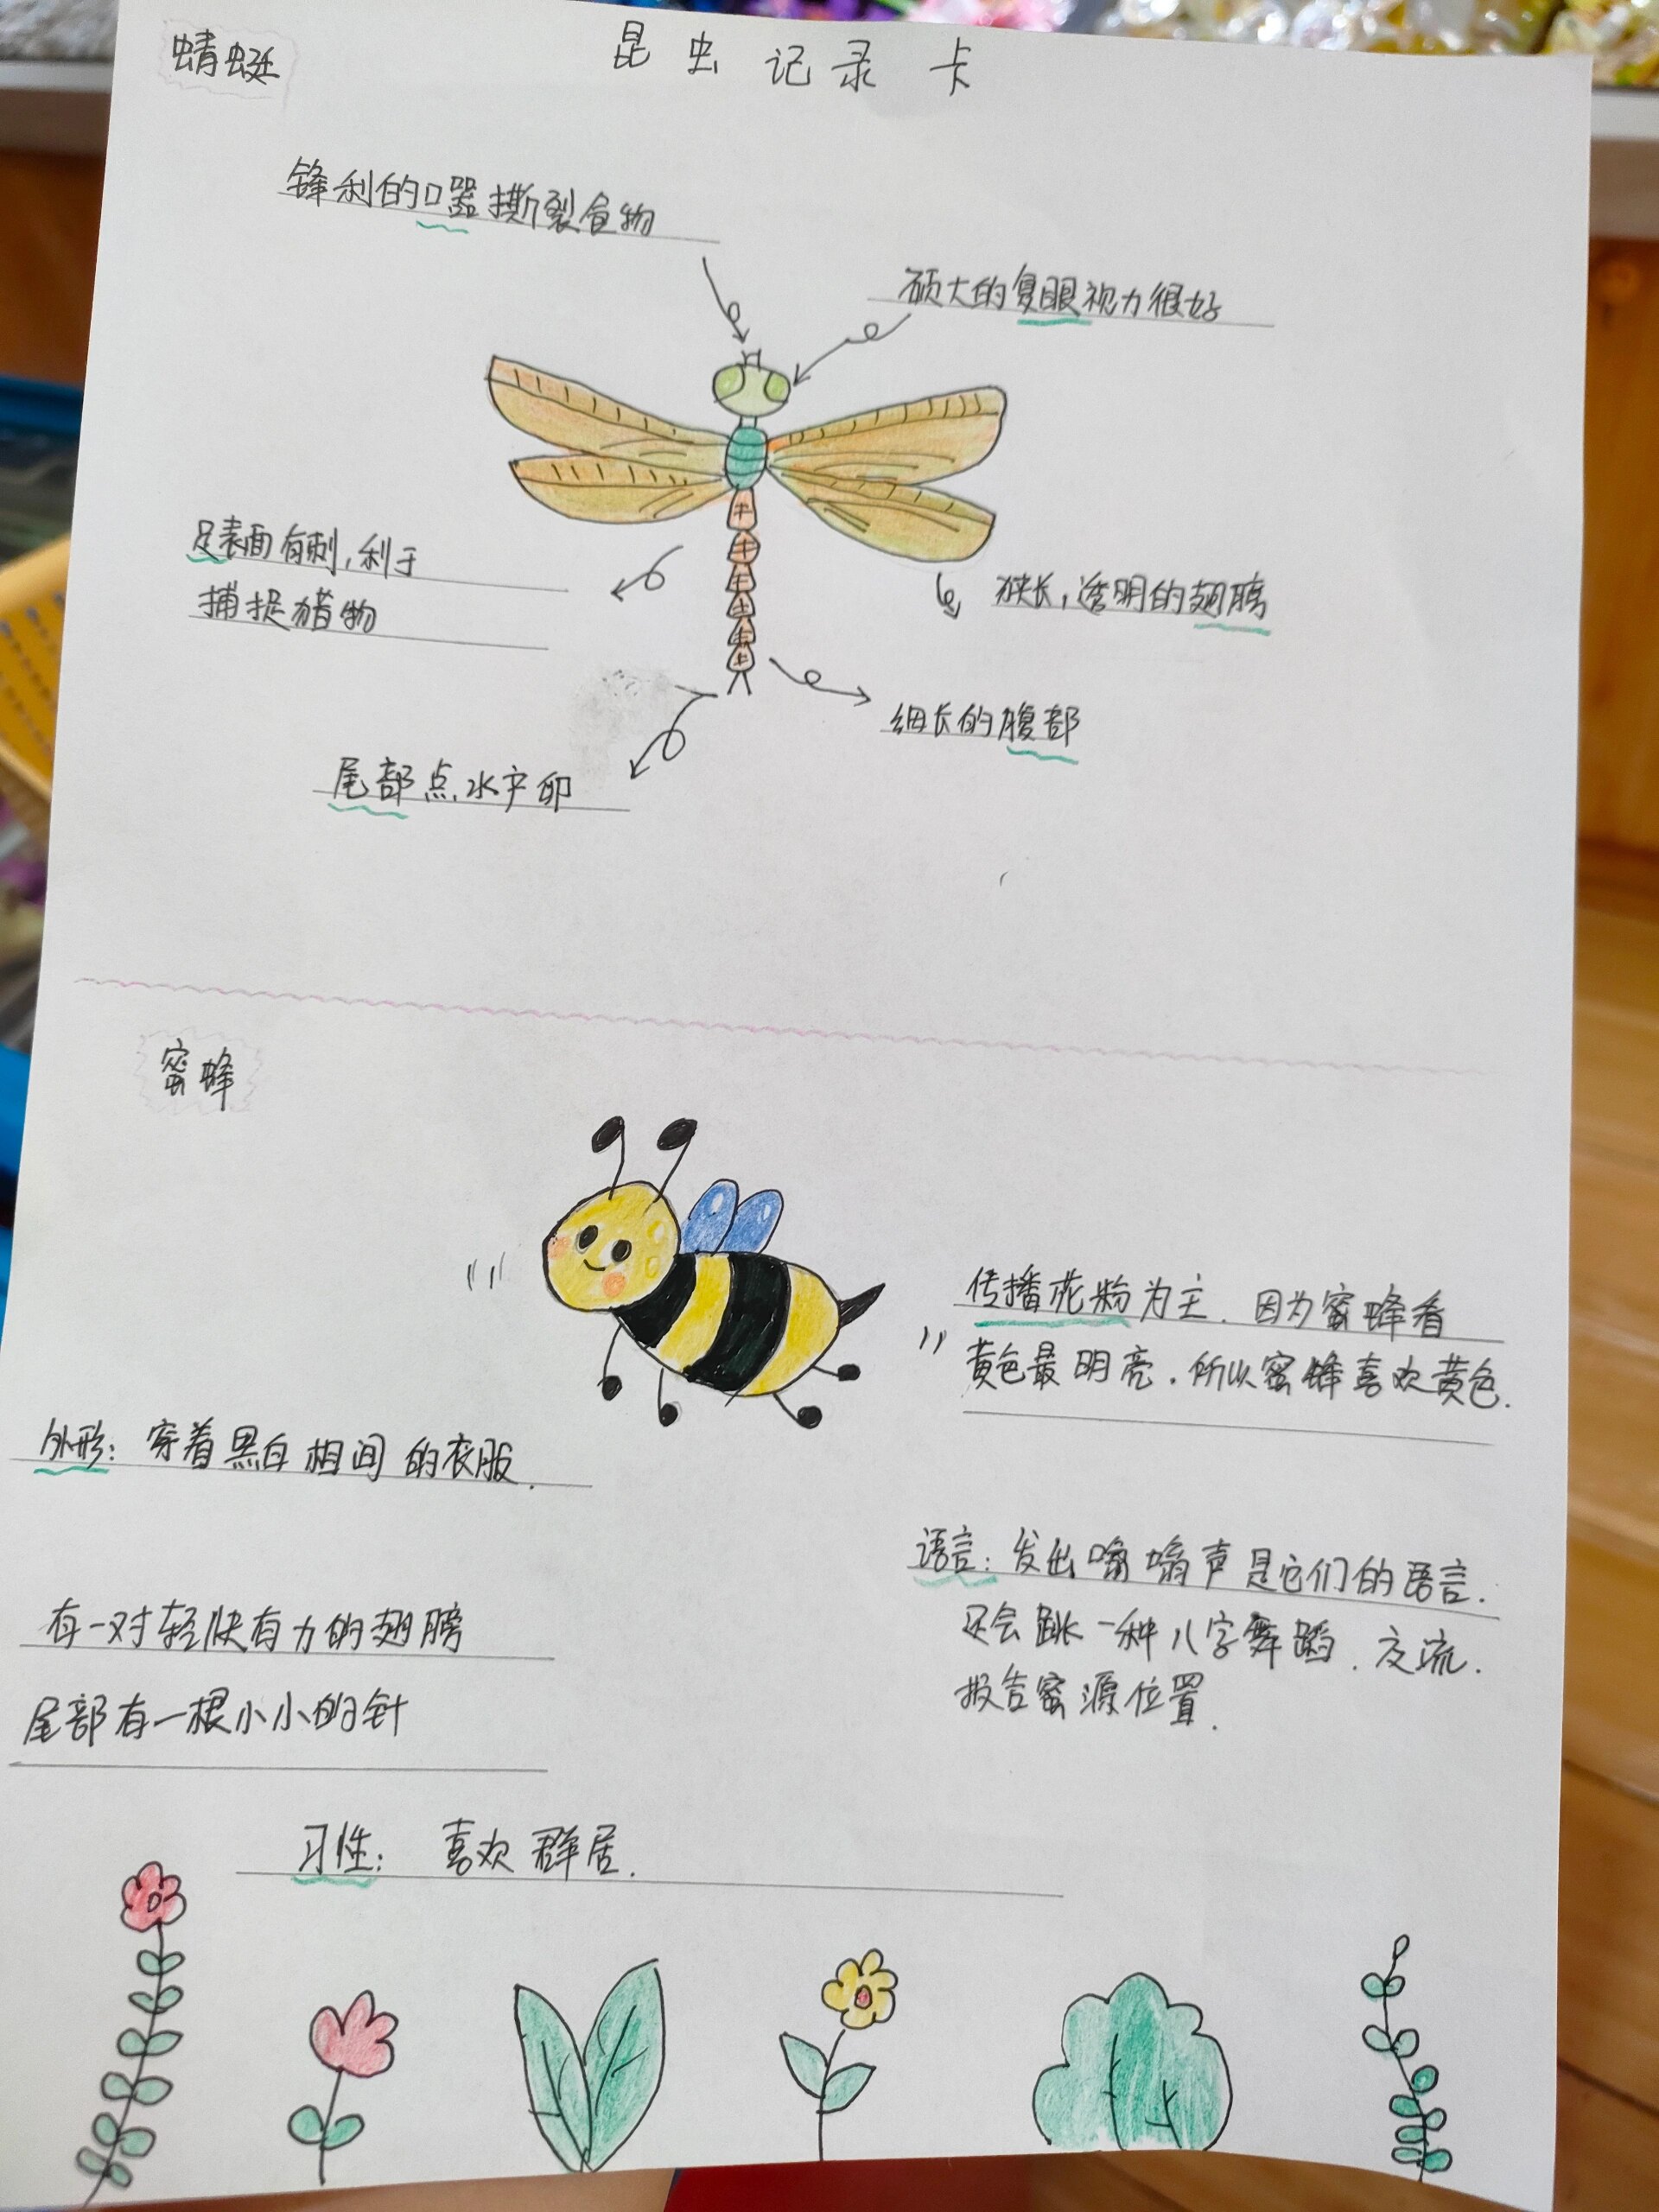 昆虫记录卡
蜻蜓
锋利的口器撕裂食物
硕大的复眼视力很好
足表面有刺,利于
捕捉猎物
狭长,透明的翅膀
细长的腹部
尾部点水产卵
蜜蜂
传播花粉为主.因为蜜蜂看
黄色最明亮.所以蜜蜂喜欢黄色.
外形:穿着黑白相间的衣服.
语言:发出嗡嗡声是它们的语言.
还会跳一种八字舞蹈.交流.
报告蜜源位置.
有一对轻快有力的翅膀
尾部有一根小小的针
习性:喜欢群居.